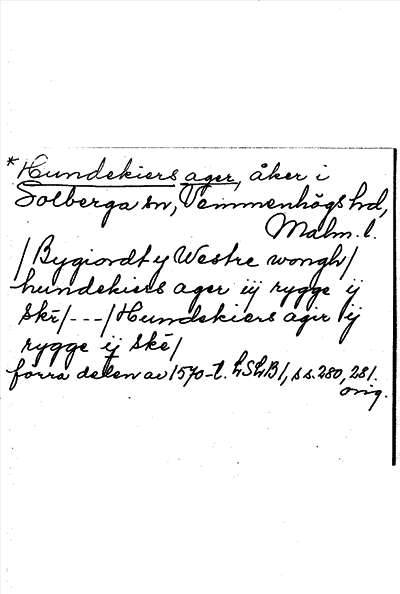 *Hundekiers ager, åker i
Solberga sn, Vemmenhögs hd,
Malm. l.
/Bygiordt y Westre wongh/
hundekiers ager iij rygge ij
skē/---/Hundekiers agir ij
rygge ij skē/
förra delen av 1570-t. LSLB1, ss. 280, 281.
orig.